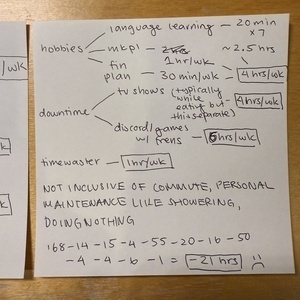 language learning – 20 min
x 7
hobbies mkpl 2 hrs ~ 2.5 hrs
fin plan 1 hr/wk
30 min/wk 4 hrs/wk
tv shows (typically
while
eating but
downtime 4hrs/wk
discord/games
w/ frens 5hrs/wk
timewaster 1hr/wk
NOT INCLUSIVE OF COMMUTE, PERSONAL
MAINTENANCE LIKE SHOWERING,
DOING NOTHING
168-14-15-4-55-20-16-50
-4-4-6-1= -21 hrs
/wk